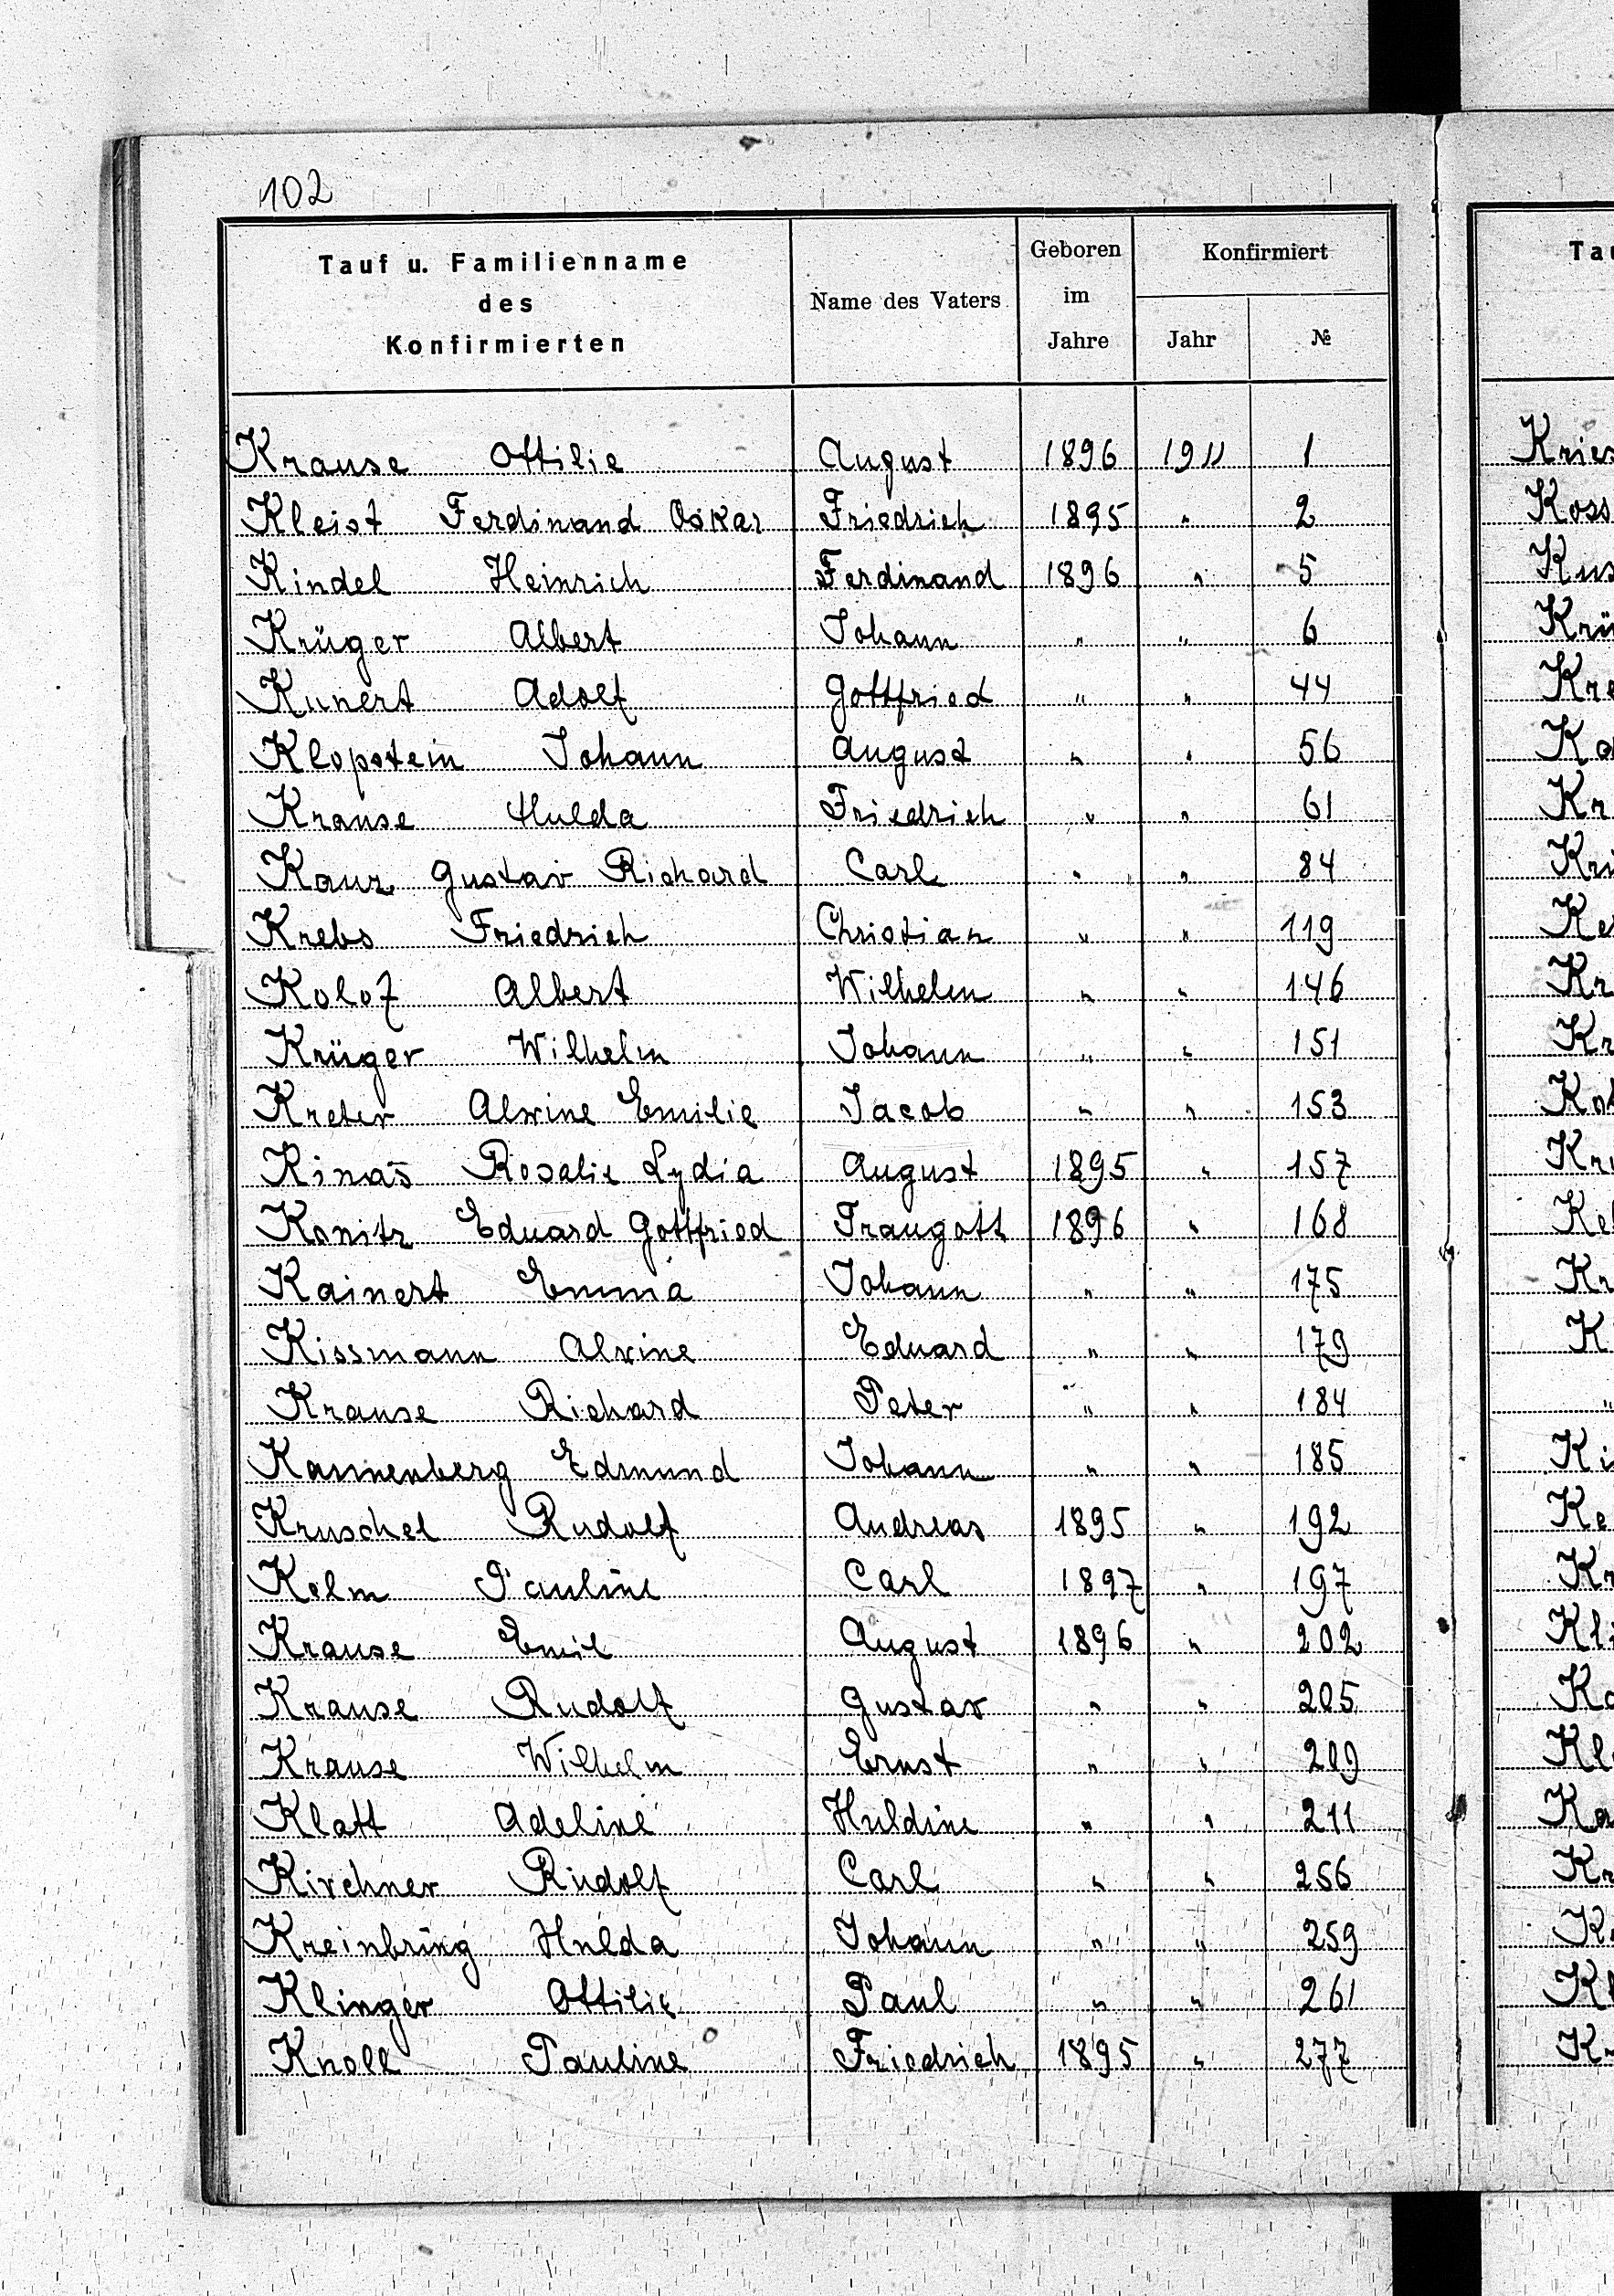 102
Tauf u. Familienname des Konfirmierten | Name des Vaters | Geboren im Jahre | Konfirmiert Jahr | №
Krause Ottilie August 1896 1911 1
Kleist Ferdinand Oskar Friedrich 1895 " 2
Kindel Heinrich Ferdinand 1896 " 5
Krüger Albert Johann " " 6
Kunert Adolf Gottfried " " 44
Klopstein Johann August " " 56
Krause Hulda Friedrich " " 61
Kauz Gustav Richard Carl " " 84
Krebs Friedrich Christian " " 119
Kolof Albert Wilhelm " " 146
Krüger Wilhelm Johann " " 151
Kreter Alvine Emilie Jacob " " 153
Kinas Rosalie Lydia August 1895 " 157
Konitz Eduard Gottfried Traugott 1896 " 168
Kainert Emma Johann " " 175
Kissmann Alvine Eduard " " 179
Krause Richard Peter " " 184
Kannenberg Edmund Johann " " 185
Kruschel Rudolf Andreas 1895 " 192
Kelm Pauline Carl 1897 " 197
Krause Emil August 1896 " 202
Krause Rudolf Gustav " " 205
Krause Wilhelm Ernst " " 209
Klatt Adeline Huldine " " 211
Kirchner Rudolf Carl " " 256
Kreinbring Hulda Johann " " 259
Klinger Ottilie Paul " " 261
Knoll Pauline Friedrich 1895 " 277